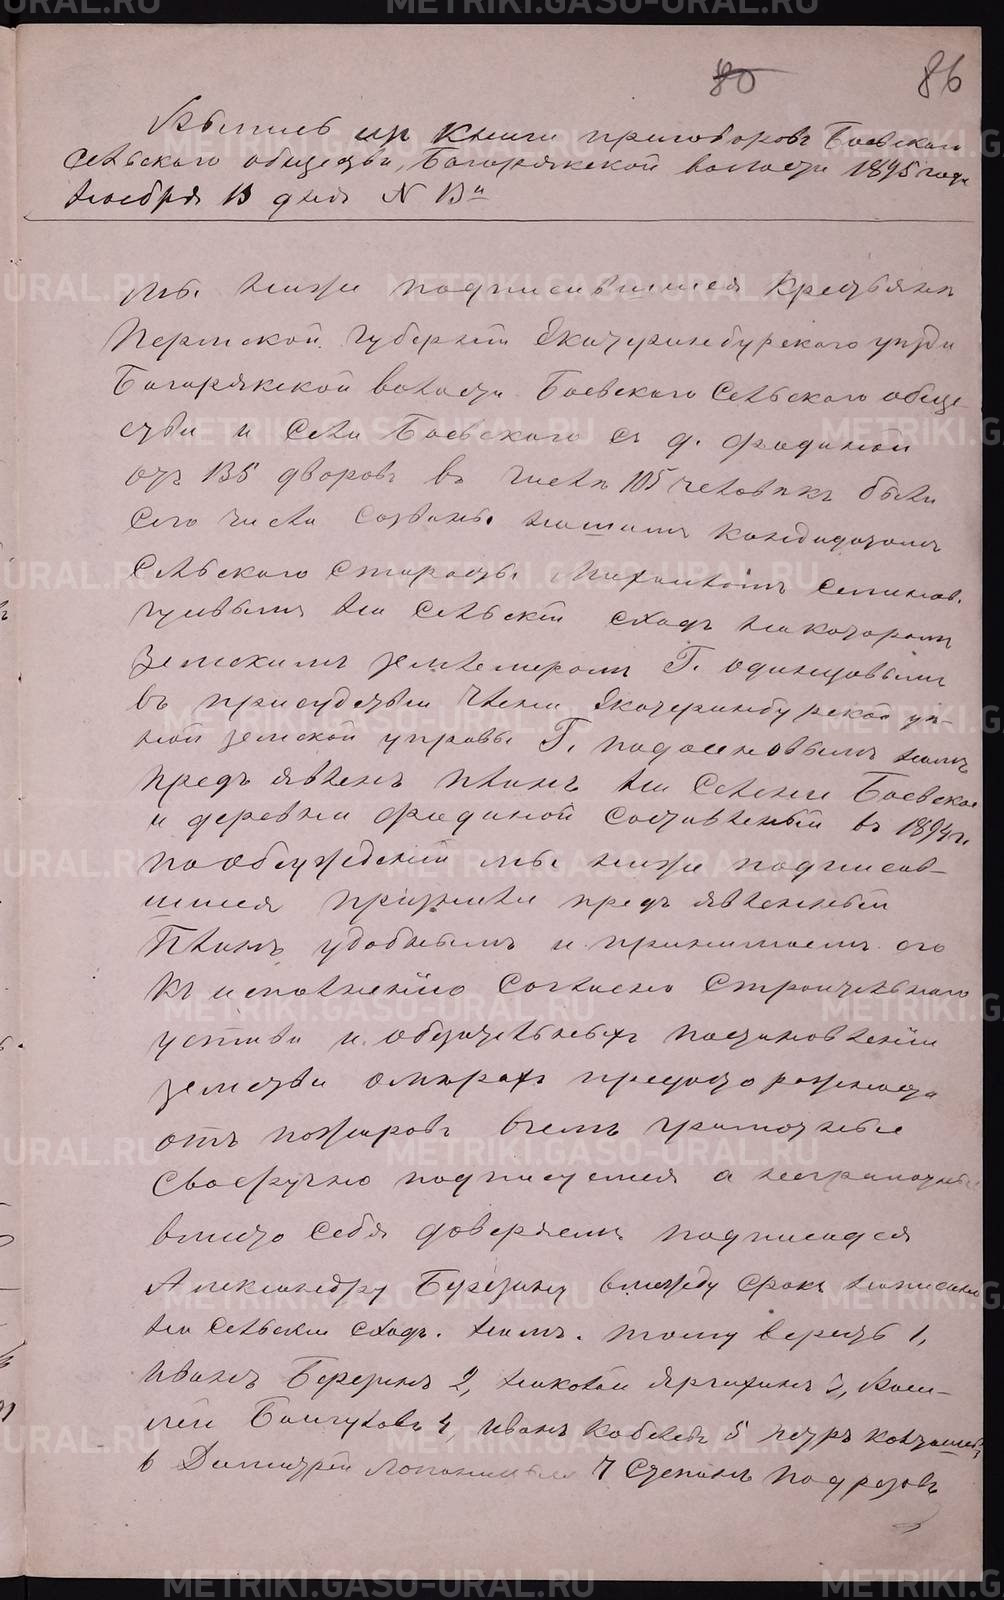 80 86
Выпись изъ Книги приговоровъ Боевскаго
Сельскаго общества, Багарякской волости 1895 года
Ноября 13 дня N 13й
Мы ниже подписавшиеся Крестьяне
Пермской губерніи Екатеринбургскаго уезда
Багарякской волости Боевскаго Сельскаго обще
ства и Села Боевскаго съ д. Фадиной
отъ 135 дворовъ въ числе 105 человекъ были
сего числа созваны нашимъ кандидатомъ
Сельскаго Старосты Михаиломъ
на Сельскій сходъ на которомъ
земскимъ землемеромъ Г. Одинцовымъ
въ присудствіи Члена Екатеринбургской уез-
ной земской управы Г. Подосеновымъ намъ
предъявленъ планъ на Селеніе Боевское
и деревни Фадиной Составленый въ 1894 г.
по обсужденіи мы ниже подписав-
шиеся признали предъявленный
Планъ удобнымъ и принимаемъ его
къ исполненію Согласно Строительнаго
устава и обязательныхъ постановленіи
земства о мерахъ предосторожности
отъ пожаровъ въ чемъ грамотные
Своеручно подписуемся а неграмотные
вместо себя доверяемъ подписатся
Александру Березину вместу срокъ написано
на Сельскій сходъ. намъ. тому верить 1,
Иванъ Березинъ 2, Николай Ярчихинъ 3, Васи-
лей 4, Иванъ Кобелевъ 5 Петръ
6 Дмитрей 7 Степанъ Подрезовъ
METRIKI.GASO-URAL.RU